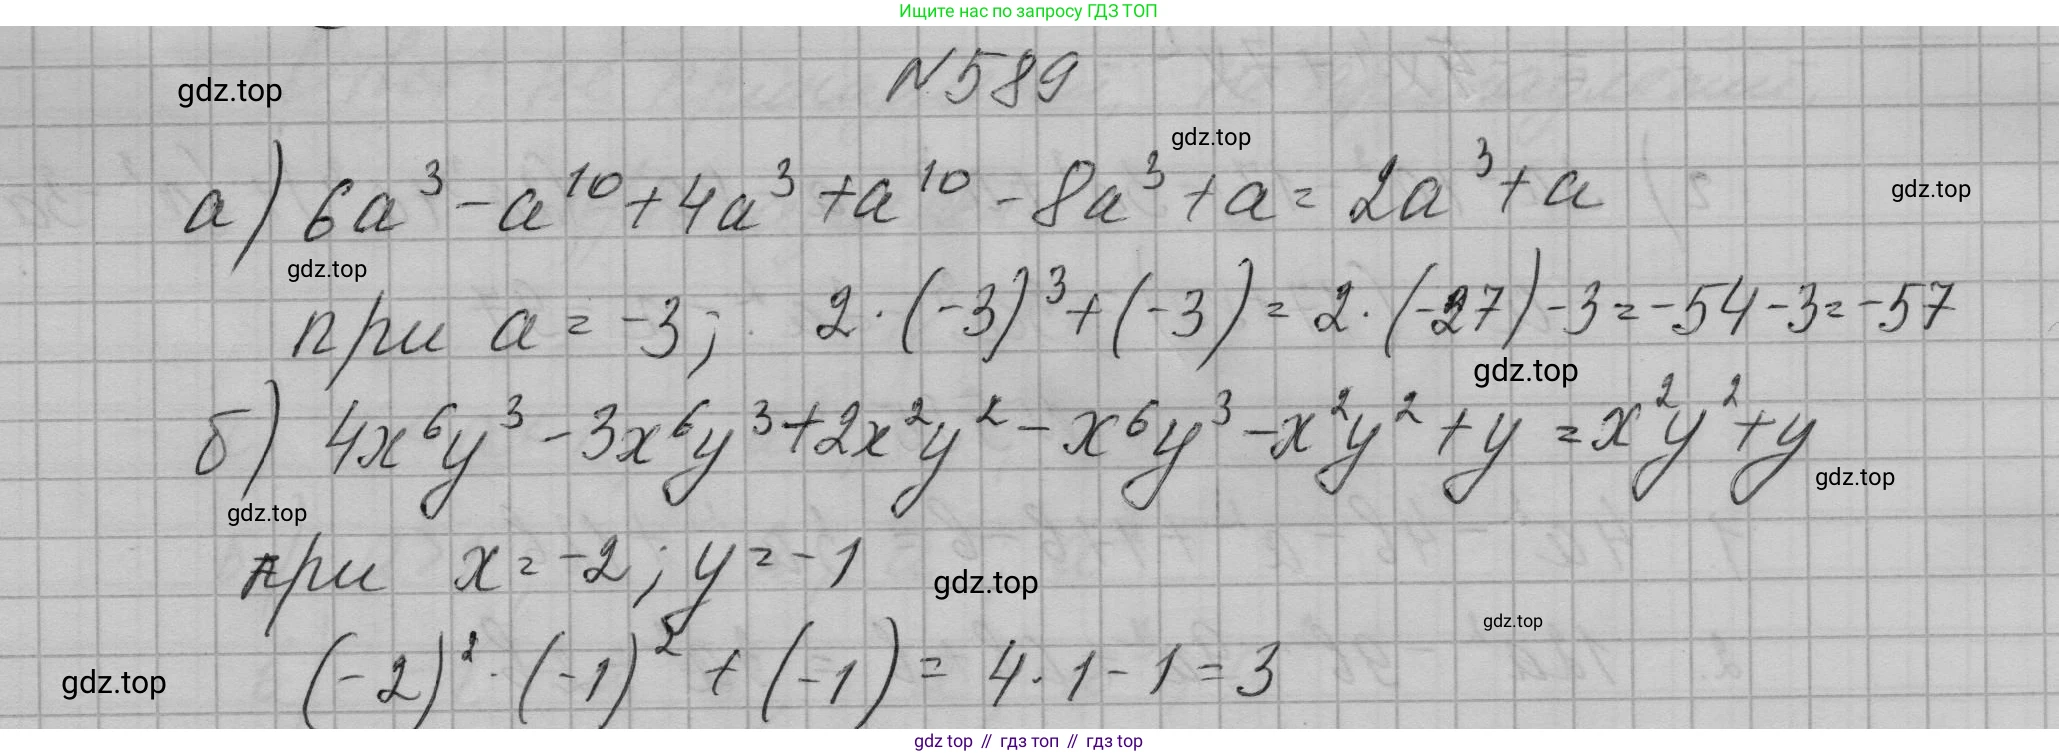 Ищите нас по запросу ГДЗ ТОП
№589
gdz.top
gdz.top
а) 6a³ - a¹⁰ + 4a³ + a¹⁰ - 8a³ + a = 2a³ + a
gdz.top
gdz.top
при a = -3; 2·(-3)³ + (-3) = 2·(-27) - 3 = -54 - 3 = -57
gdz.top
б) 4x⁶y³ - 3x⁶y³ + 2x²y² - x⁶y³ - x²y² + y = x²y² + y
gdz.top
gdz.top
при x = -2; y = -1
gdz.top
gdz.top
(-2)²·(-1)² + (-1) = 4·1 - 1 = 3
gdz.top
gdz top // гдз топ // гдз top